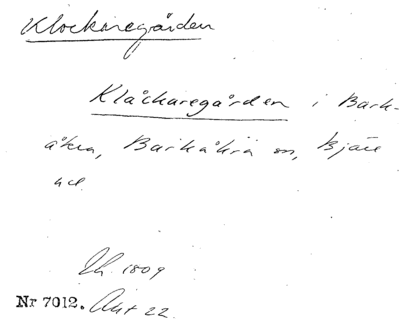 Klockaregården
Klåckaregården i Bark-
åkra, Barkåkra sn, Bjäre
hd.
Lh. 1809
Nr 7012. Akt 22.